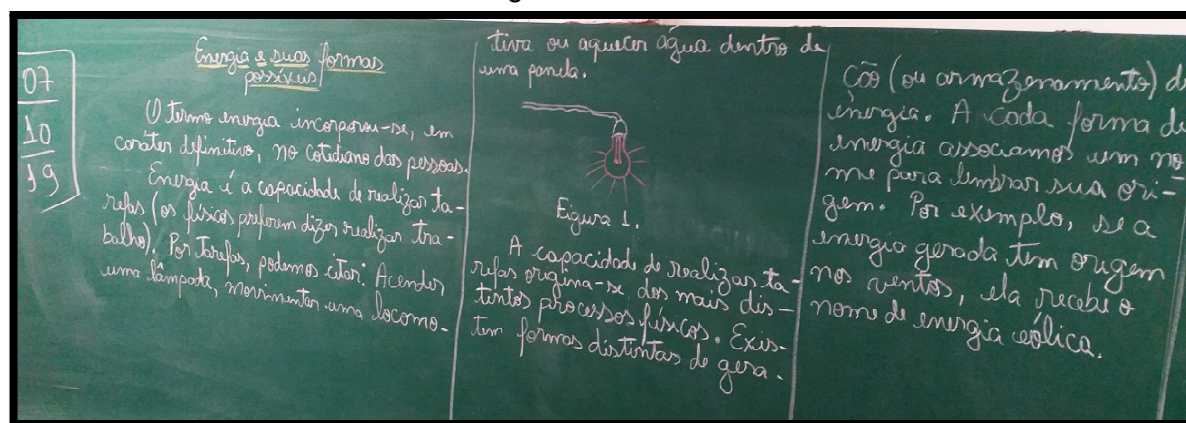 07
10
19
Energia e suas formas
possíveis
O termo energia incorporou-se, em
caráter definitivo, no cotidiano das pessoas.
Energia é a capacidade de realizar ta-
refas (os físicos preferem dizer realizar tra-
balho). Por Tarefas, podemos citar: Acender
uma lâmpada, movimentar uma locomo-
tiva ou aquecer água dentro de
uma panela.
Figura 1.
A capacidade de realizar ta-
refas origina-se dos mais dis-
tintos processos físicos. Exis-
tem formas distintas de gera-
ção (ou armazenamento) de
energia. A cada forma de
energia associamos um no
me para lembrar sua ori-
gem. Por exemplo, se a
energia gerada tem origem
nos ventos, ela recebe o
nome de energia eólica.